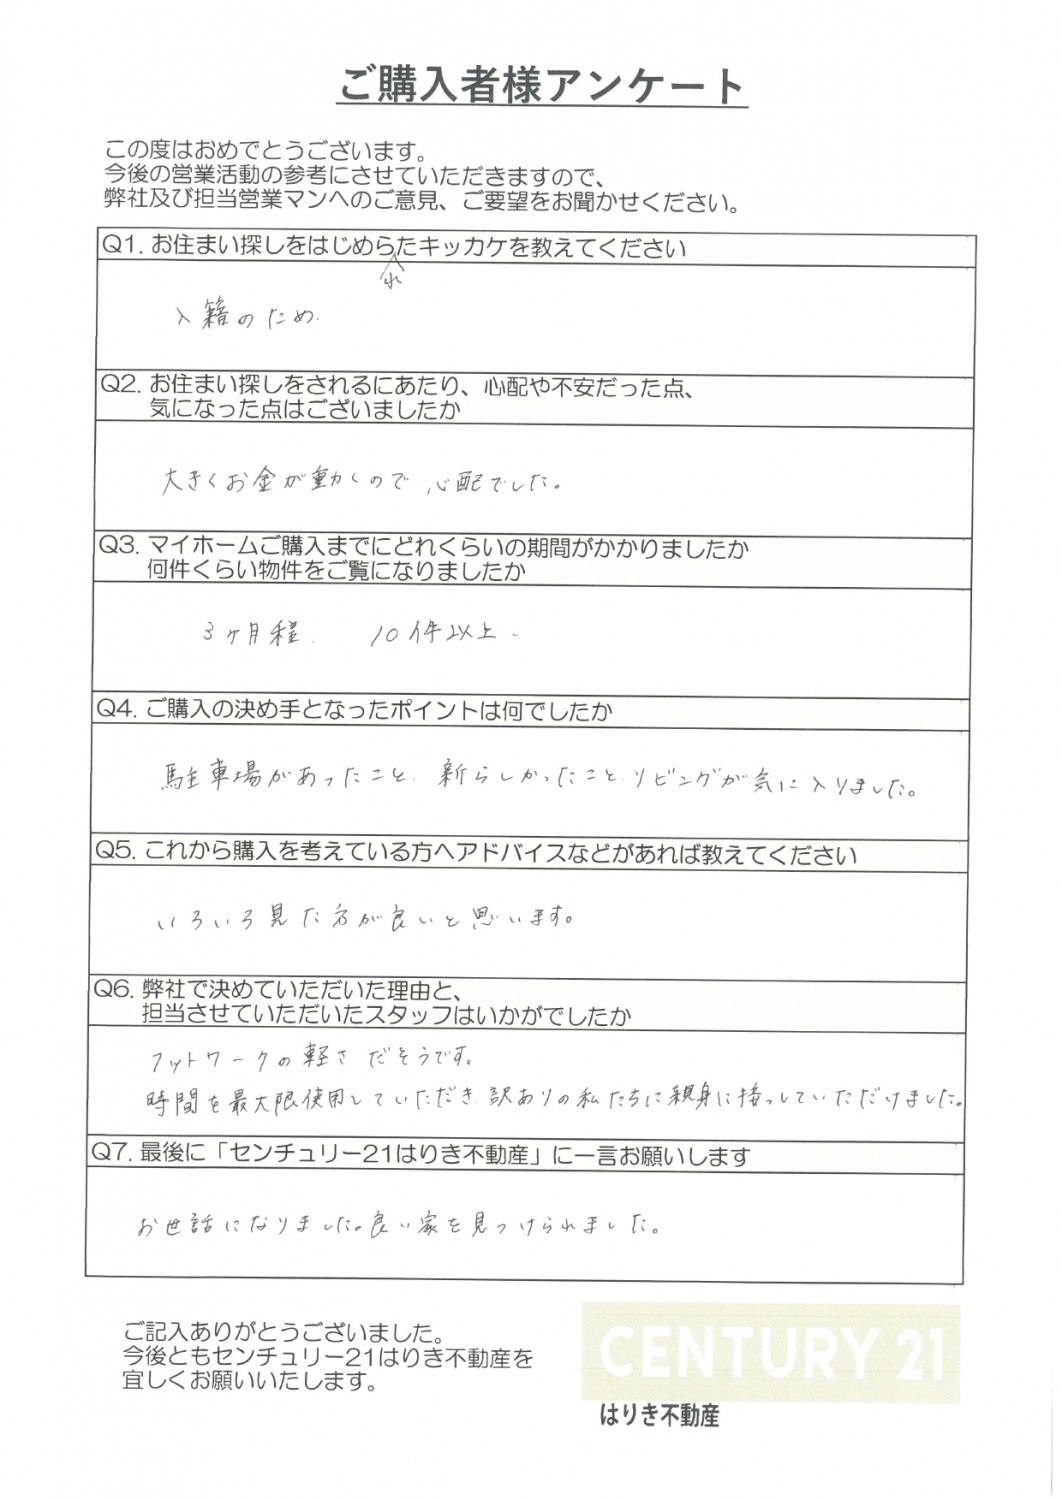 ご購入者様アンケート
この度はおめでとうございます。
今後の営業活動の参考にさせていただきますので、
弊社及び担当営業マンへのご意見、ご要望をお聞かせください。
Q1. お住まい探しをはじめらたキッカケを教えてください
れ
入籍のため.
Q2. お住まい探しをされるにあたり、心配や不安だった点、
気になった点はございましたか
大きくお金が動くので、心配でした。
Q3. マイホームご購入までにどれくらいの期間がかかりましたか
何件くらい物件をご覧になりましたか
3ヶ月程. 10件以上.
Q4. ご購入の決め手となったポイントは何でしたか
駐車場があったこと、新らしかったこと、リビングが気に入りました。
Q5. これから購入を考えている方へアドバイスなどがあれば教えてください
いろいろ見た方が良いと思います。
Q6. 弊社で決めていただいた理由と、
担当させていただいたスタッフはいかがでしたか
フットワークの軽さだそうです。
時間を最大限使用していただき、訳ありの私たちに親身に接っしていただけました。
Q7. 最後に「センチュリー21はりき不動産」に一言お願いします
お世話になりました。良い家を見つけられました。
ご記入ありがとうございました。
今後ともセンチュリー21はりき不動産を
宜しくお願いいたします。
CENTURY 21
はりき不動産